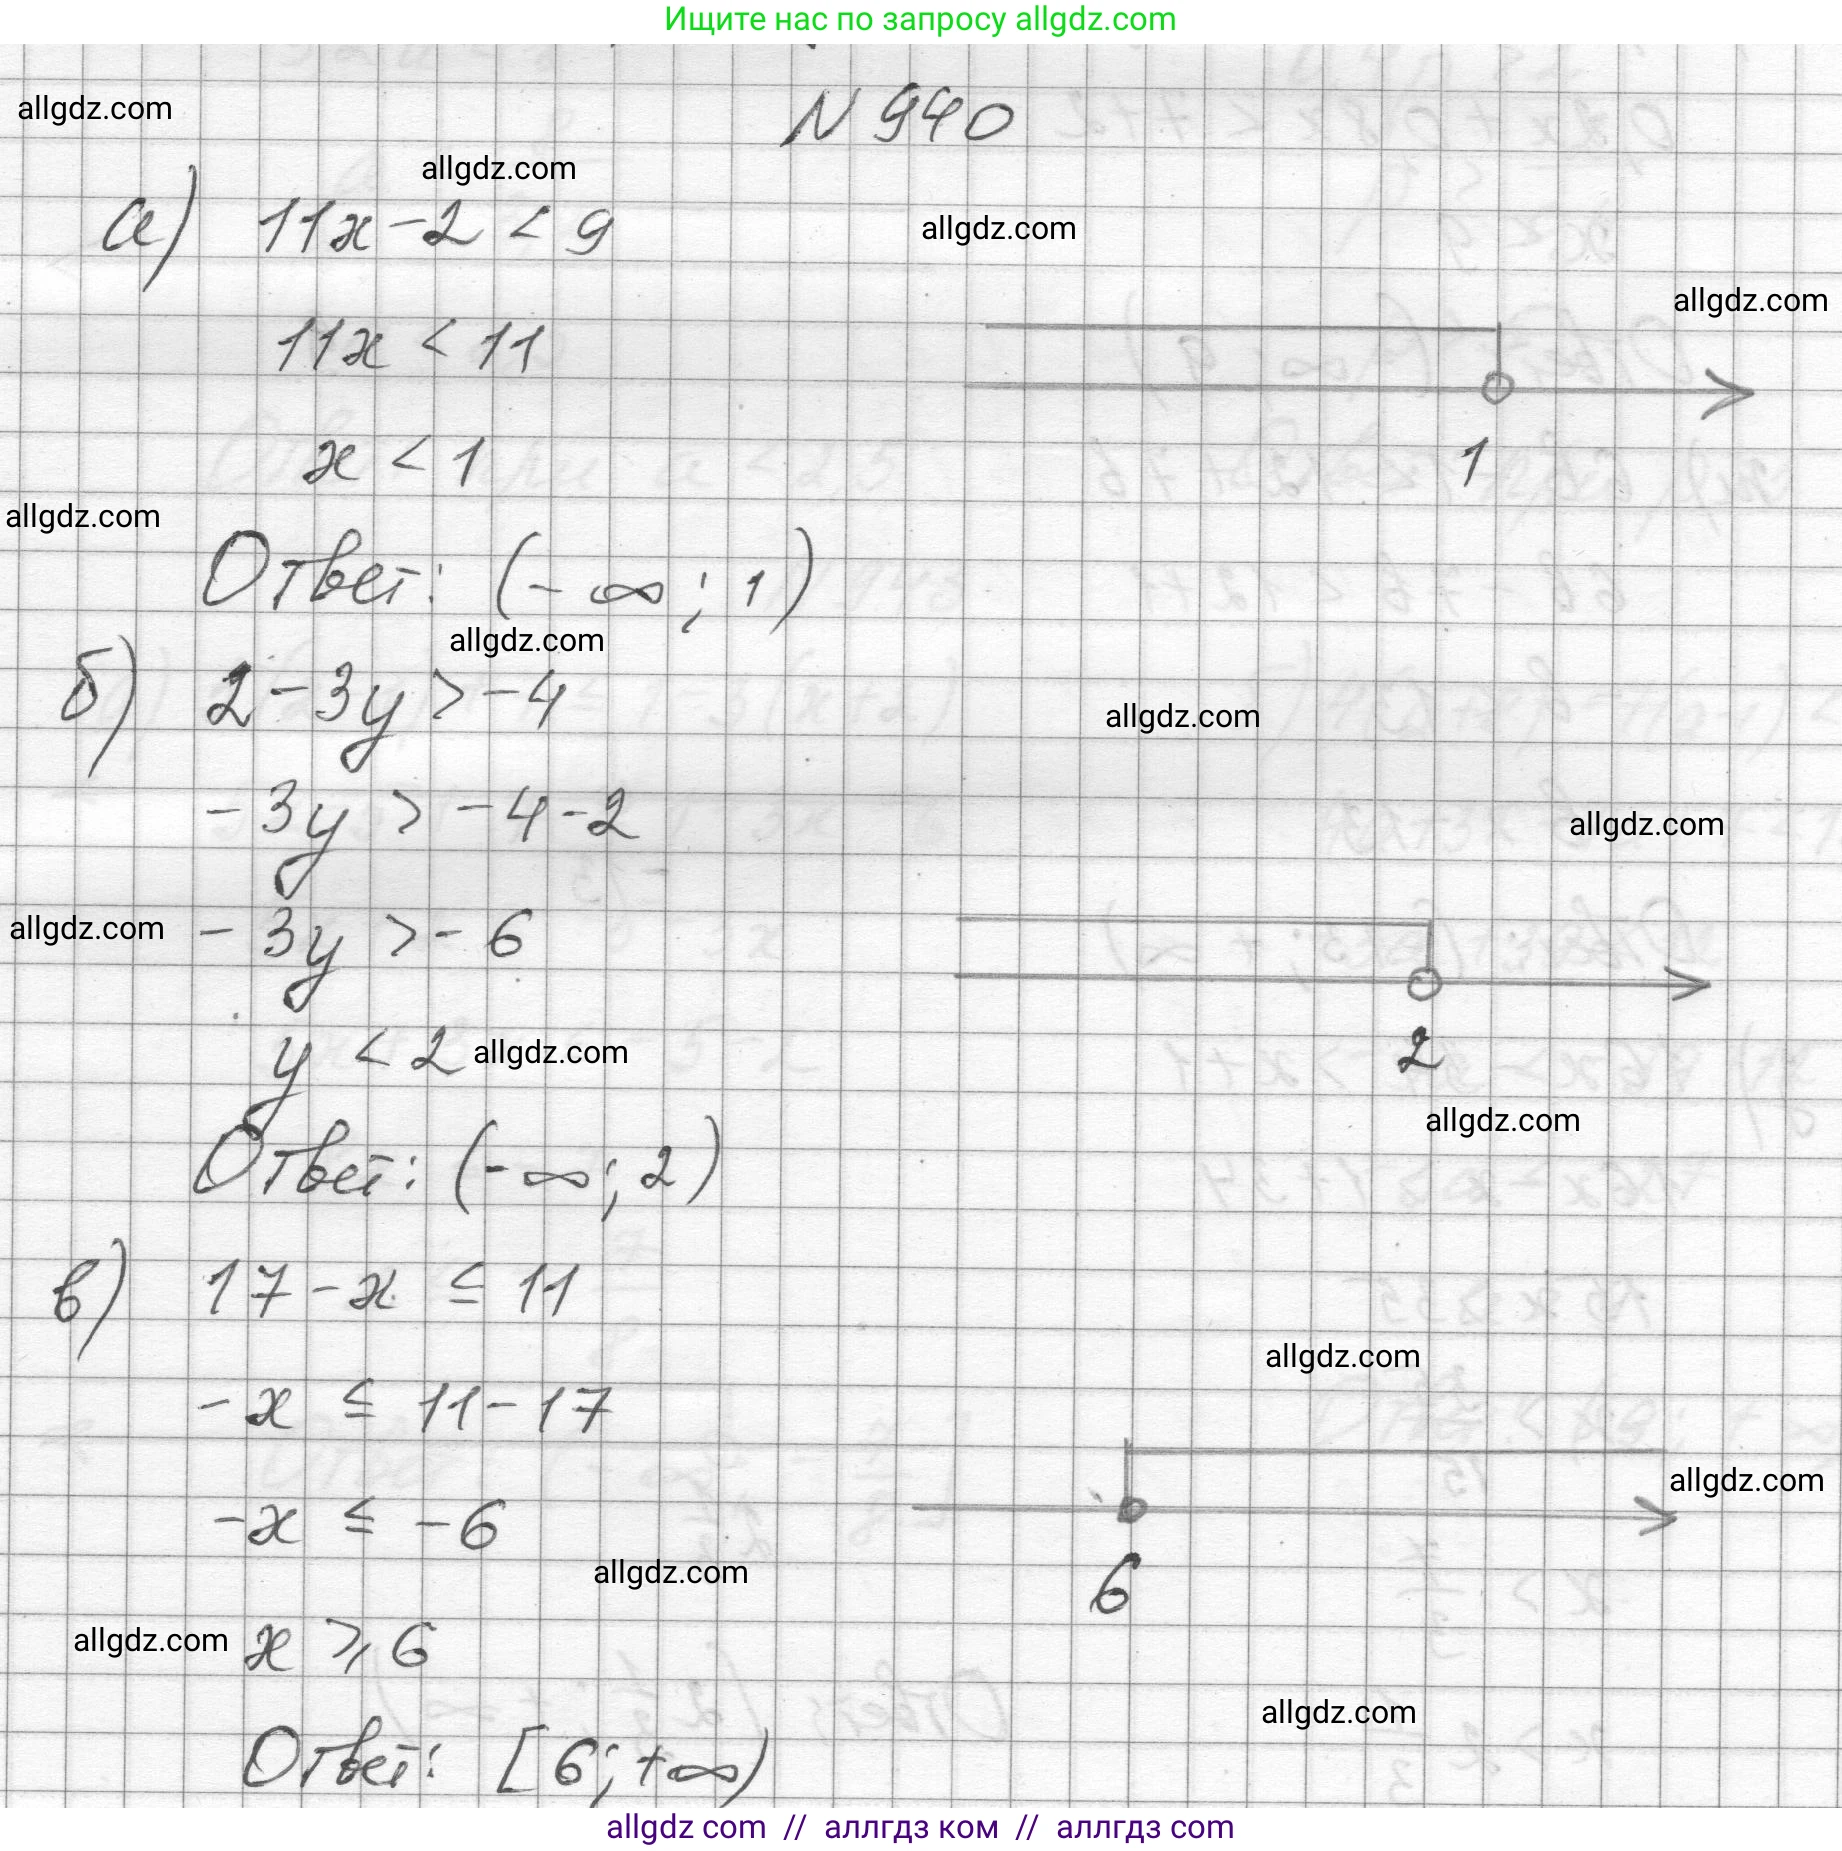 Ищите нас по запросу allgdz.com
N 940
allgdz.com
allgdz.com
а) 11x - 2 < 9
allgdz.com
allgdz.com
11x < 11
x < 1
1
allgdz.com
Ответ: (-∞; 1)
allgdz.com
б) 2 - 3y > -4
allgdz.com
-3y > -4-2
allgdz.com
allgdz.com
-3y > -6
y < 2
allgdz.com
2
allgdz.com
Ответ: (-∞; 2)
в) 17 - x ≤ 11
allgdz.com
-x ≤ 11-17
allgdz.com
-x ≤ -6
allgdz.com
6
allgdz.com
x ⩾ 6
allgdz.com
Ответ: [6; +∞)
allgdz com // аллгдз ком // аллгдз com